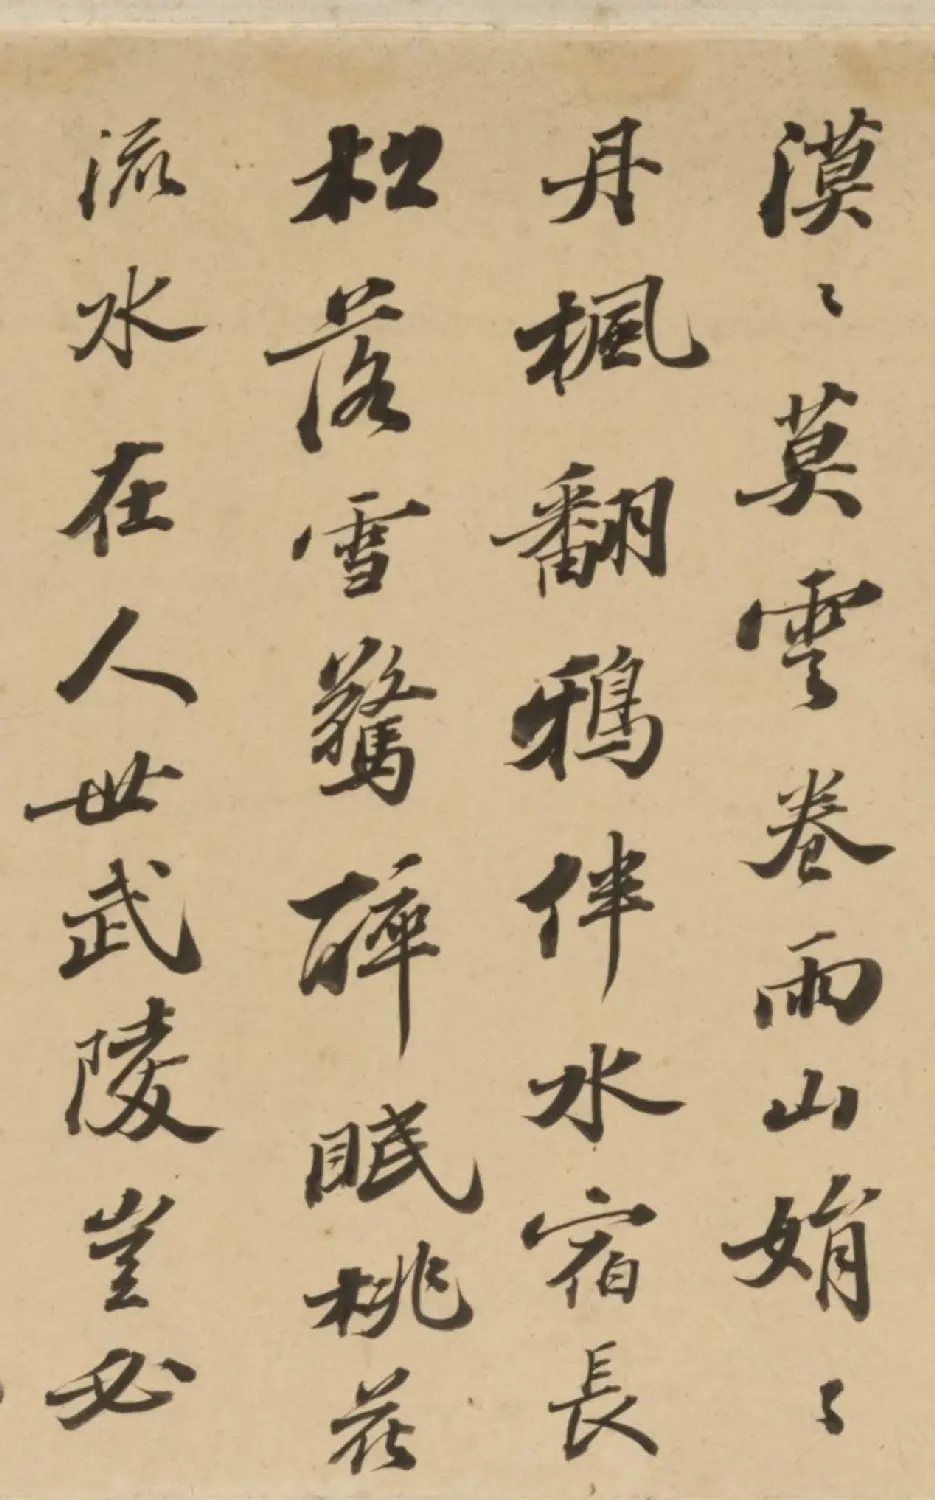 漠〻莫雲卷雨山娟〻
丹楓翻鴉伴水宿長
松落雪驚醉眠桃花
流水在人世武陵豈必